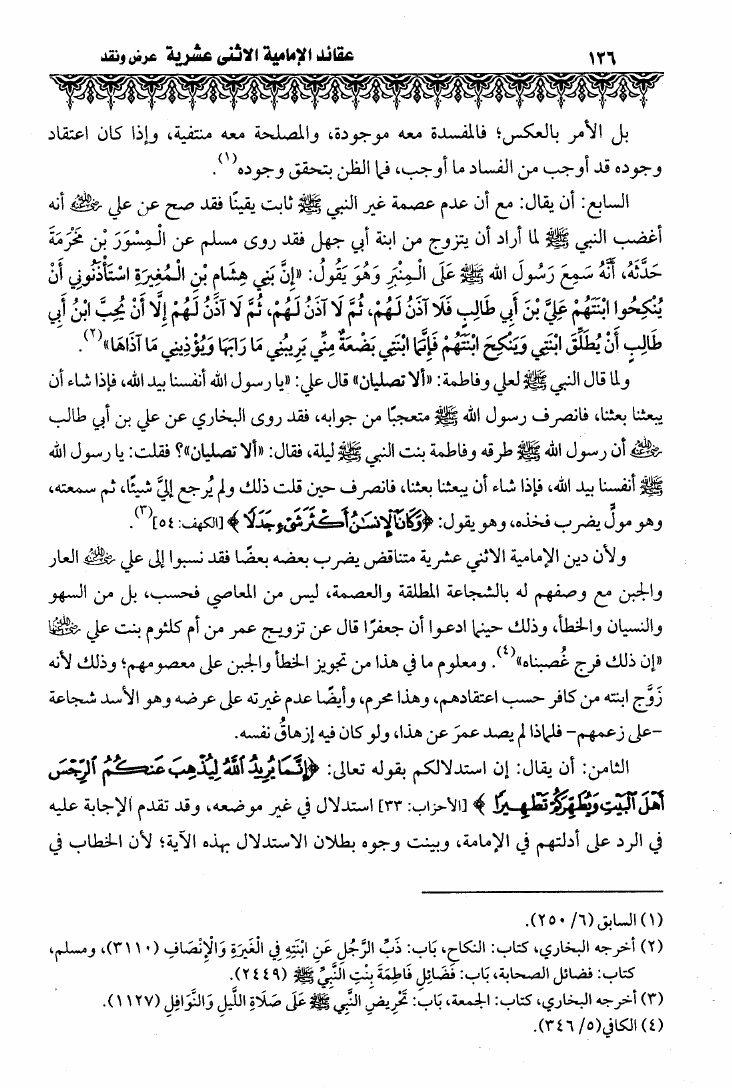 ١٣٦ عقائد الإمامية الاثنى عشرية عرض ونقد
بل الأمر بالعكس؛ فالمفسدة معه موجودة، والمصلحة معه منتفية، وإذا كان اعتقاد
وجوده قد أوجب من الفساد ما أوجب، فما الظن بتحقق وجوده(١).
السابع: أن يقال: مع أن عدم عصمة غير النبي ﷺ ثابت يقينًا فقد صح عن علي رضي الله عنه أنه
أغضب النبي ﷺ لما أراد أن يتزوج من ابنة أبي جهل فقد روى مسلم عن الْمِسْوَرَ بْنَ مَخْرَمَةَ
حَدَّثَهُ، أَنَّهُ سَمِعَ رَسُولَ الله ﷺ عَلَى الْمِنْبَرِ وَهُوَ يَقُولُ: «إِنَّ بَنِي هِشَامِ بْنِ الْمُغِيرَةِ اسْتَأْذَنُونِي أَنْ
يُنْكِحُوا ابْنَتَهُمْ عَلِيَّ بْنَ أَبِي طَالِبٍ فَلَا آذَنُ لَهُمْ، ثُمَّ لَا آذَنُ لَهُمْ، ثُمَّ لَا آذَنُ لَهُمْ إِلَّا أَنْ يُحِبَّ ابْنُ أَبِي
طَالِبٍ أَنْ يُطَلِّقَ ابْنَتِي وَيَنْكِحَ ابْنَتَهُمْ فَإِنَّمَا ابْنَتِي بَضْعَةٌ مِنِّي يَرِيبُنِي مَا رَابَهَا وَيُؤْذِينِي مَا آذَاهَا»(٢).
ولما قال النبي ﷺ لعلي وفاطمة: «ألا تصليان» قال علي: «يا رسول الله أنفسنا بيد الله، فإذا شاء أن
يبعثنا بعثنا، فانصرف رسول الله ﷺ متعجبًا من جوابه، فقد روى البخاري عن علي بن أبي طالب
رضي الله عنه أن رسول الله ﷺ طرقه وفاطمة بنت النبي ﷺ ليلة، فقال: «ألا تصليان»؟ فقلت: يا رسول الله
ﷺ أنفسنا بيد الله، فإذا شاء أن يبعثنا بعثنا، فانصرف حين قلت ذلك ولم يُرجع إليَّ شيئًا، ثم سمعته،
وهو مولٍّ يضرب فخذه، وهو يقول: ﴿وَكَانَ ٱلْإِنسَـٰنُ أَكْثَرَ شَىْءٍ جَدَلًا﴾ [الكهف: ٥٤](٣).
ولأن دين الإمامية الاثني عشرية متناقض يضرب بعضه بعضًا فقد نسبوا إلى علي رضي الله عنه العار
والجبن مع وصفهم له بالشجاعة المطلقة والعصمة، ليس من المعاصي فحسب، بل من السهو
والنسيان والخطأ، وذلك حينما ادعوا أن جعفرًا قال عن تزويج عمر من أم كلثوم بنت علي رضي الله عنها
«إن ذلك فرج غُصبناه»(٤). ومعلوم ما في هذا من تجويز الخطأ والجبن على معصومهم؛ وذلك لأنه
زَوَّج ابنته من كافر حسب اعتقادهم، وهذا محرم، وأيضًا عدم غيرته على عرضه وهو الأسد شجاعة
-على زعمهم- فلماذا لم يصد عمرَ عن هذا، ولو كان فيه إزهاقُ نفسه.
الثامن: أن يقال: إن استدلالكم بقوله تعالى: ﴿إِنَّمَا يُرِيدُ ٱللَّهُ لِيُذْهِبَ عَنكُمُ ٱلرِّجْسَ
أَهْلَ ٱلْبَيْتِ وَيُطَهِّرَكُمْ تَطْهِيرًا﴾ [الأحزاب: ٣٣] استدلال في غير موضعه، وقد تقدم الإجابة عليه
في الرد على أدلتهم في الإمامة، وبينت وجوه بطلان الاستدلال بهذه الآية؛ لأن الخطاب في
(١) السابق (٦/ ٢٥٠).
(٢) أخرجه البخاري، كتاب: النكاح، بَاب: ذَبِّ الرَّجُلِ عَنِ ابْنَتِهِ فِي الْغَيْرَةِ وَالْإِنْصَافِ (٣١١٠)، ومسلم،
كتاب: فضائل الصحابة، بَاب: فَضَائِلِ فَاطِمَةَ بِنْتِ النَّبِيِّ ﷺ (٢٤٤٩).
(٣) أخرجه البخاري، كتاب: الجمعة، بَاب: تَحْرِيضِ النَّبِيِّ ﷺ عَلَى صَلَاةِ اللَّيْلِ وَالنَّوَافِلِ (١١٢٧).
(٤) الكافي(٥/ ٣٤٦).